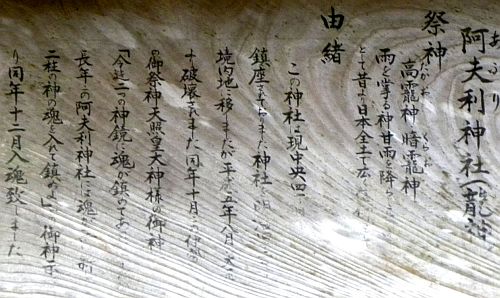 阿夫利神社(龍神
あふり
祭神
高龗神 暗龗神
たかお くらお
雨を掌る神 甘雨を降ら
とて昔より日本全土で広く
由緒
この神社は現中央四一
鎮座されておりました神社
境内地へ移しましたが平成五年八月
破壊されました同年十月
の御祭神天照皇大神様の御神
「今迄二つの神鏡に魂が鎮めてあ
長年の阿夫利神社に魂
二柱の神の魂を入れて鎮め 御神示
り同年十二月入魂致しました